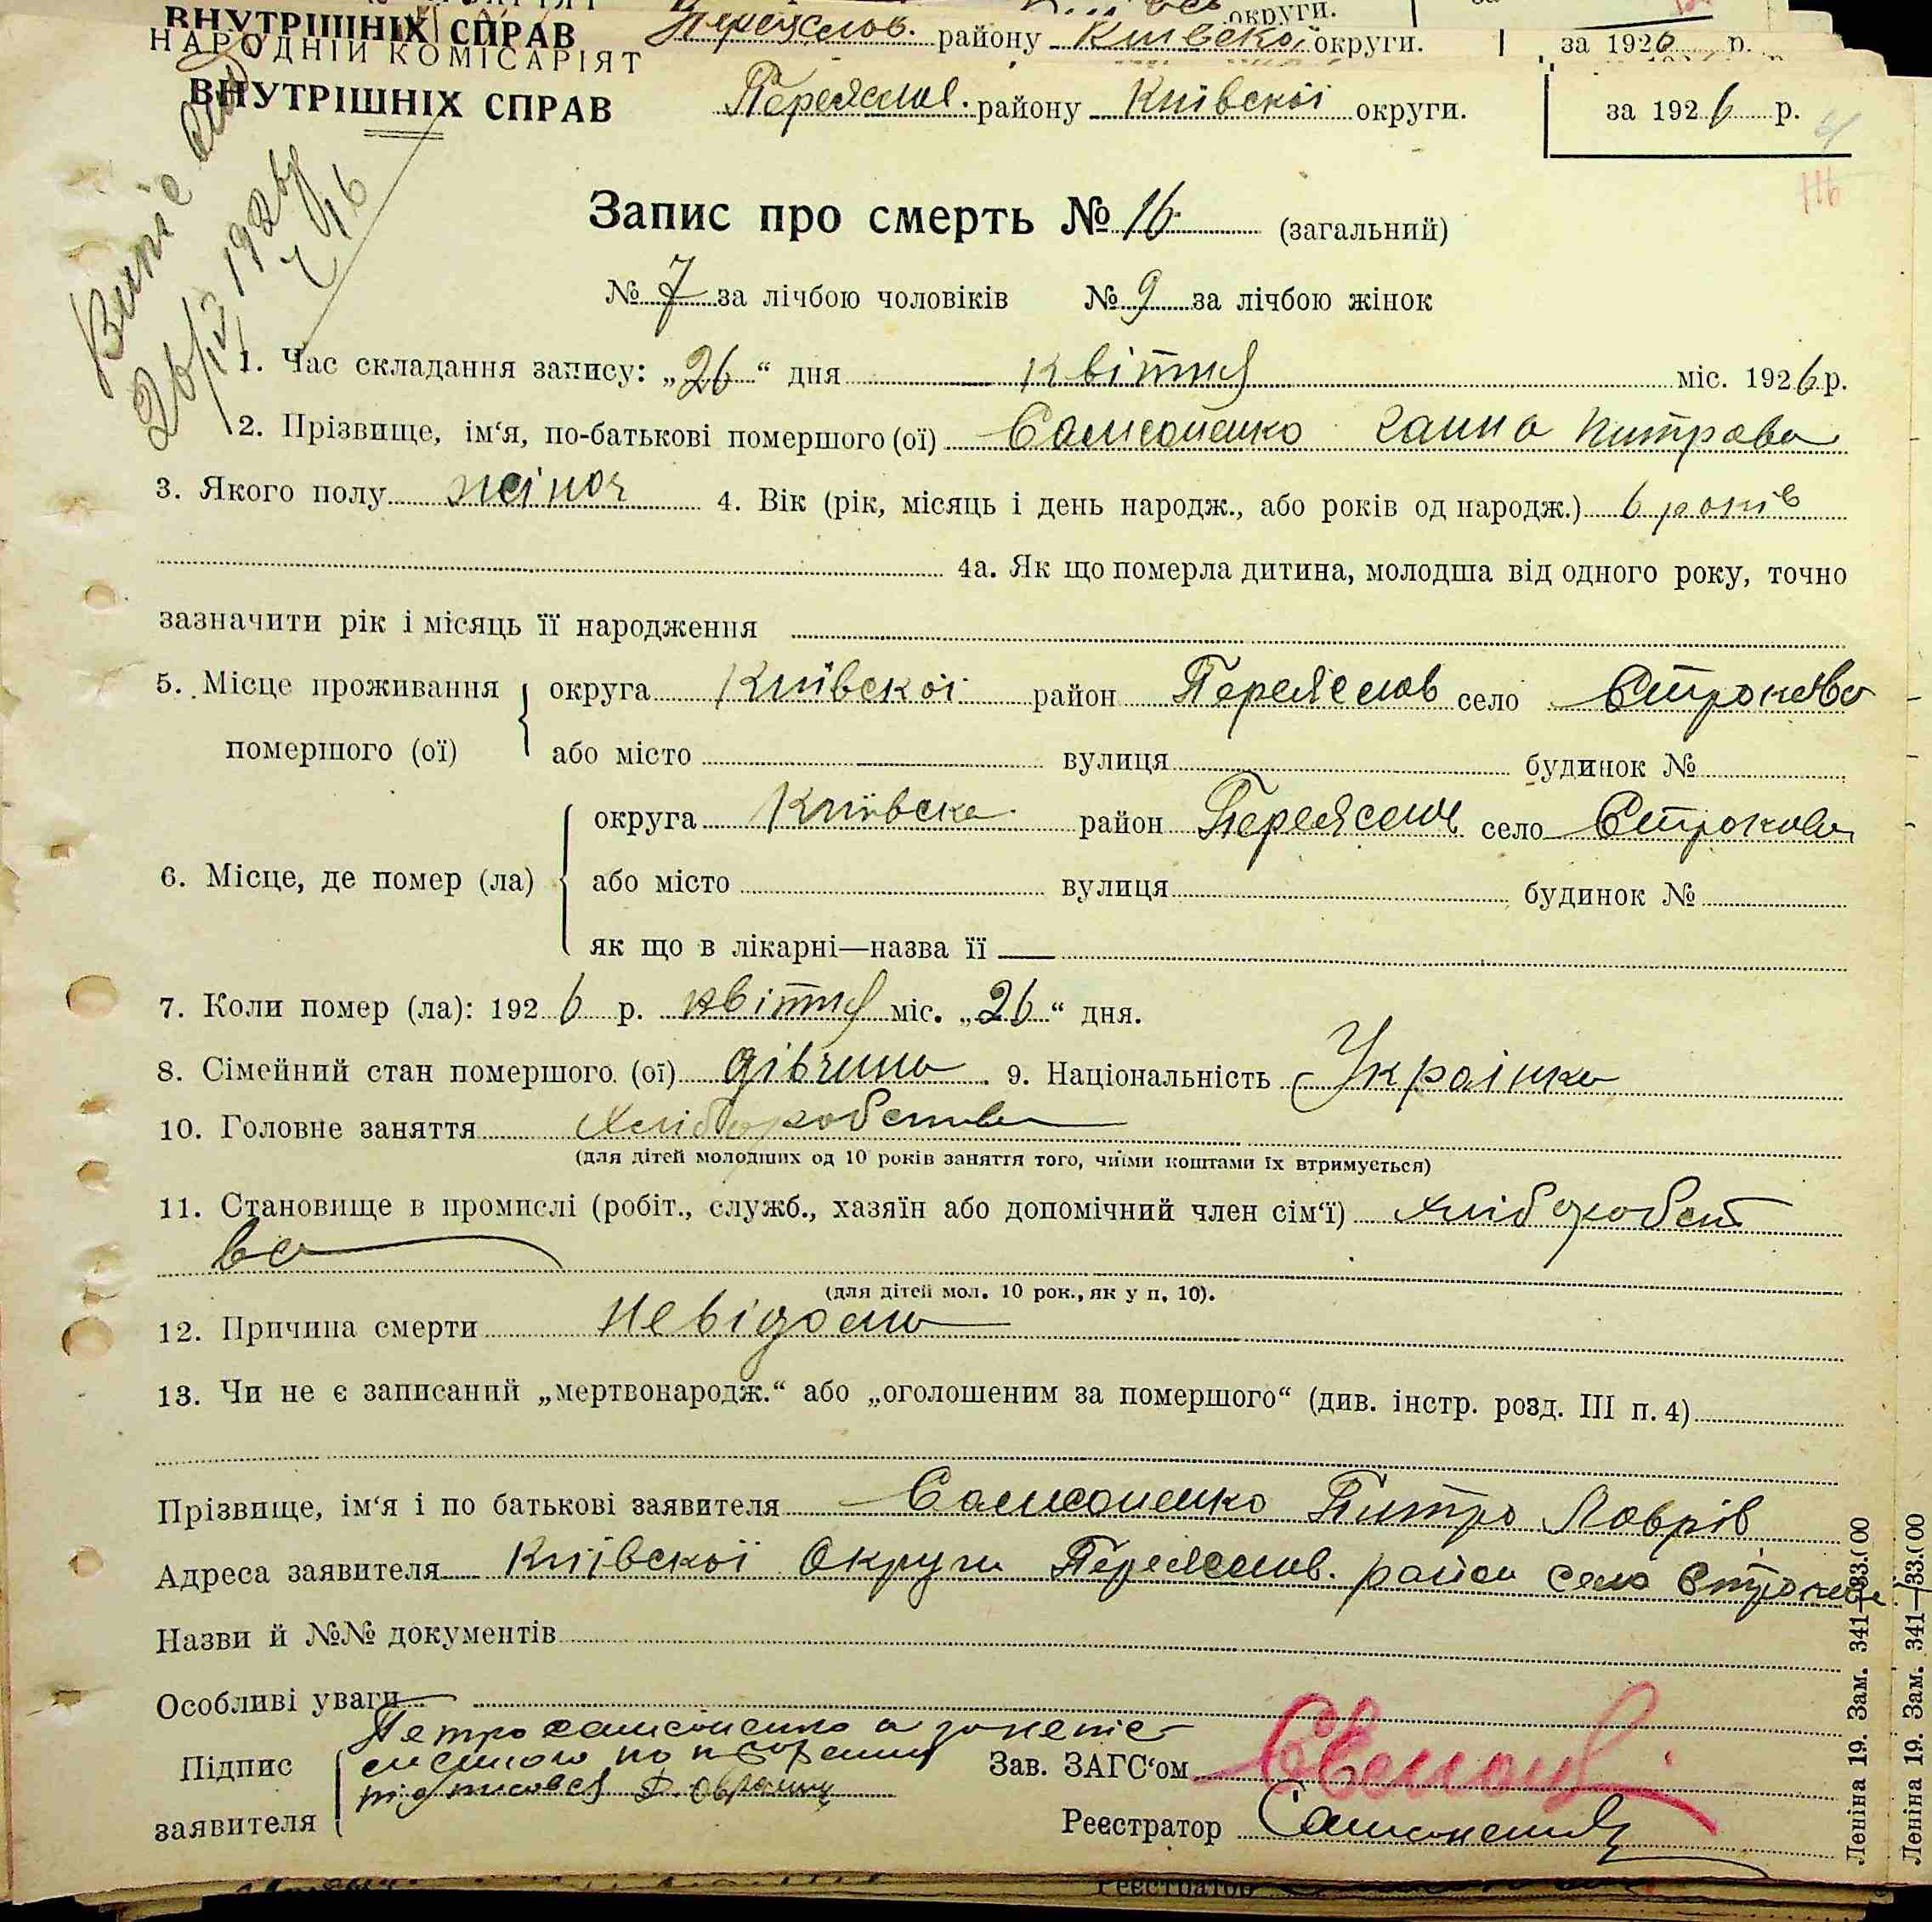 ВНУТРІШНІХ СПРАВ Переяслов. району Київської округи. за 1926 р.
НАРОДНІЙ КОМІСАРІЯТ
ВНУТРІШНІХ СПРАВ Переяслов. району Київскої округи. за 1926 р.
116
Запис про смерть № 16 (загальний)
№ 7 за лічбою чоловіків № 9 за лічбою жінок
1. Час складання запису: „26“ дня квітня міс. 1926 р.
2. Прізвище, ім‘я, по-батькові помершого (ої) Самсоненко Ганна Питрова
3. Якого полу жіноч 4. Вік (рік, місяць і день народж., або років од народж.) 6 років
4а. Як що померла дитина, молодша від одного року, точно
зазначити рік і місяць її народження
5. Місце проживання помершого (ої) округа Київскої район Переяслов село Строкова
або місто вулиця будинок №
округа Київска район Переяслов село Строкова
6. Місце, де помер (ла) або місто вулиця будинок №
як що в лікарні—назва її
7. Коли помер (ла): 1926 р. квітня міс. „26“ дня.
8. Сімейний стан помершого (ої) дівчина 9. Національність Українка
10. Головне заняття Хліборобства
(для дітей молодших од 10 років заняття того, чиїми коштами їх втримується)
11. Становище в промислі (робіт., служб., хазяїн або допомічний член сім‘ї) хліборобст
во
(для дітей мол. 10 рок., як у п. 10).
12. Причина смерти Невідома
13. Чи не є записаний „мертвонародж.“ або „оголошеним за помершого“ (див. інстр. розд. III п. 4)
Прізвище, ім‘я і по батькові заявителя Самсоненко Питро Лаврів
Адреса заявителя Київскої Округи Переяслов. район село Строкова
Назви й №№ документів
Особливі уваги
Підпис заявителя Петро Самсоненко а за неписменого по підписався
Зав. ЗАГС‘ом
Реєстратор Самсоненко
Леніна 19. Зам. 341—33.000
Леніна 19. Зам. 341—33.000
Реєстратор